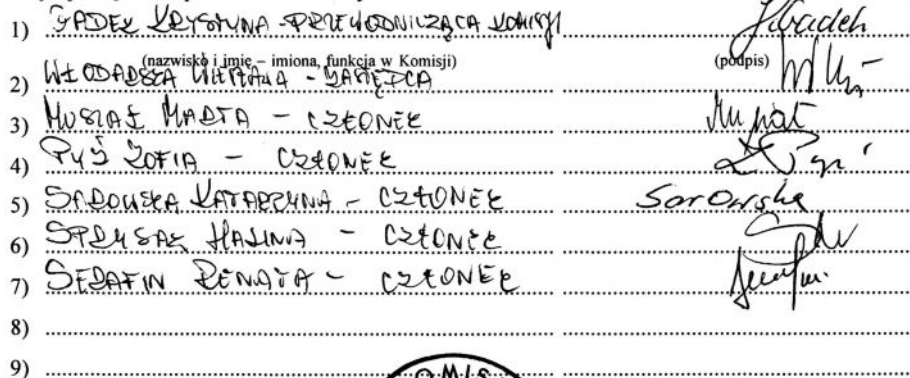 1) GADEK KRYSTYNA - PRZEWODNICZĄCA KOMISJI
(nazwisko i imię – imiona, funkcja w Komisji) (podpis)
2) WŁODARSKA - ZASTĘPCA
3) MUSIAŁ MARTA - CZŁONEK Musiał
4) PYŚ ZOFIA - CZŁONEK
5) SAROWSKA KATARZYNA - CZŁONEK Sarowska
6) HALINA - CZŁONEK
7) SERAFIN RENATA - CZŁONEK
8)
9)
OMIS